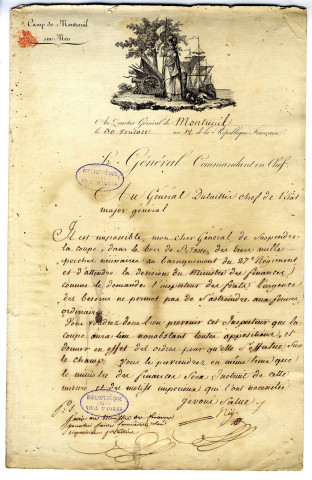 Camp de Montreuil
sur Mer
Au Quartier Général de Montreuil
le 30 an 12 de la République Française.
Le Général Commandant en Chef
Au Général Dutaillis chef de l'état
major général
Il est impossible, mon cher Général de suspendre
la coupe, dans le bois de des trois mille
perches nécessaires au baraquement du 27e Régiment
et d'attendre la décision du Ministre des finances
comme le demande l'inspecteur des forêts; l'urgence
des besoins ne permet pas de s'astreindre aux formes
ordinaires.
Vous voudrez donc bien prévenir cet Inspecteur que la
coupe aura lieu nonobstant toute opposition, et
donner en effet des ordres pour qu'elle s'effectue sur
le champ. Vous le préviendrez en même tems que
le ministre des finances sera instruit de cette
mesure et des motifs impérieux qui l'ont nécessitée
Je vous salue
Ney
BIBLIOTHEQUE
DE LA
VILLE DE PARIS
BIBLIOTHEQUE
DE LA
VILLE DE PARIS